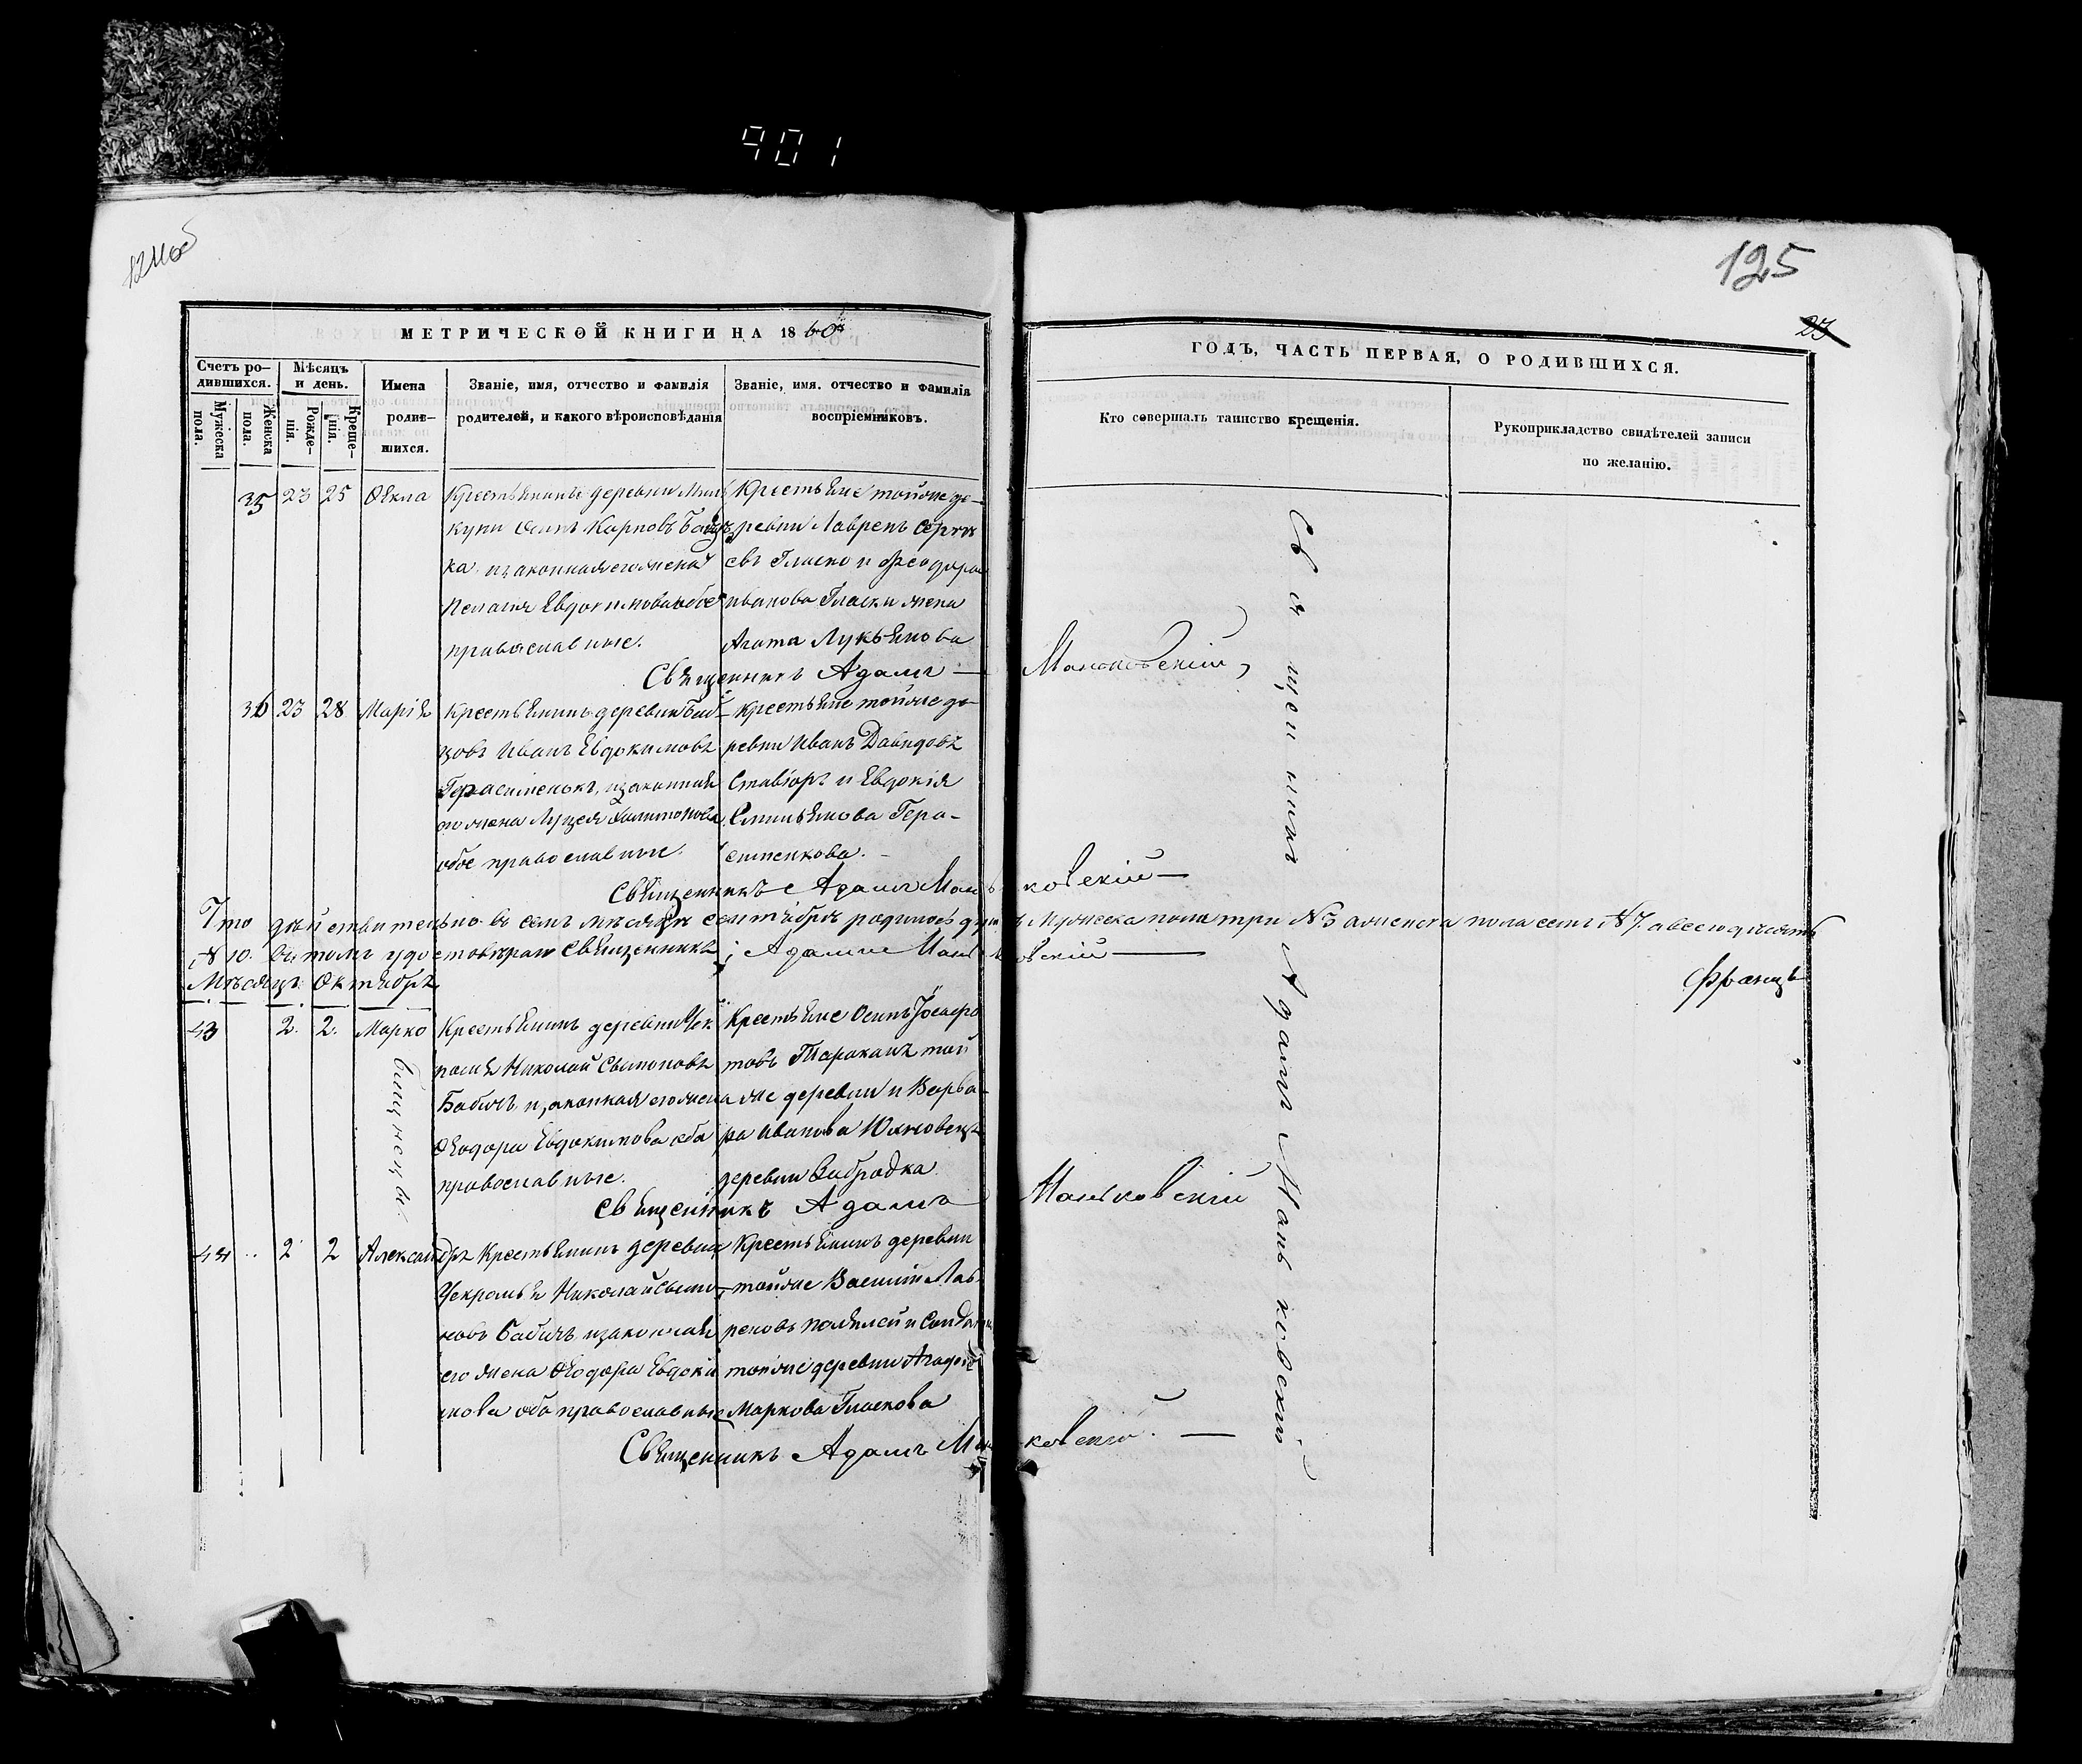 901
124об
125
23
МЕТРИЧЕСКОЙ КНИГИ НА 1860й
ГОДЪ, ЧАСТЬ ПЕРВАЯ, О РОДИВШИХСЯ.
Счетъ ро-
дившихся.
Мужеска
пола.
Женска
пола.
Мѣсяцъ
и день.
Рожде-
нія.
Креще-
нія.
Имена
родив-
шихся.
Званіе, имя, отчество и фамилія
родителей, и какого вѣроисповѣданія
Званіе, имя. отчество и фамилія
воспріемниковъ.
Кто совершалъ таинство крещенія.
Рукоприкладство свидѣтелей записи
по желанію.
35 23 25 Ѳекла
Крестьянинъ деревни
куни Осипъ Карповъ
ка изаконная его жена
Пелагія Евдокимова обое
православные.
Крестьяне тойже де-
ревни Лавренъ
евъ Гласко и Феодора
Иванова Гласки жена
Агата Лукьянова
Священникъ Адамъ Маньковскій,
36 23 28 Марія
Крестьянинъ деревни Баб-
цовъ Иванъ Евдокимовъ
Герасименокъ, изаконная
его жена Луцея Халимонова
обое православные.
Крестьяне тойже де-
ревни Иванъ Давидовъ
и Евдокія
Емильянова Гера-
сименкова.
Священникъ Адамъ Маньковскій
Что действительно въ семъ мѣсяцѣ сентябрѣ родилось душъ Мужеска пола три №3 аженска пола семь №7. авсего десять
№10. Вътомъ удостовѣряю Священникъ Адамъ Маньковскій
Мѣсяцъ Октябрь
43 2. 2. Марко
близнецы.
Крестьянинъ деревни Чек
Николай Сымоновъ
Бабичъ изаконная его жена
Ѳеодора Евдокимова оба
православные.
Крестьяне Осипъ Іосафо
товъ Тараканъ той
же деревни и Варва-
ра Иванова
деревни
Священникъ Адамъ Маньковскій
44 2 2 Александръ
Крестьянинъ деревни
Николай Сымо-
новъ Бабичъ изаконная
его жена Ѳеодора Евдоки
мова оба православные
Крестьянинъ деревни
тойже Василій Лав-
реновъ
тойже деревни Агафія
Маркова Гласкова
Священникъ Адамъ Маньковскій.
Священникъ Адамъ Маньковскій
Францъ